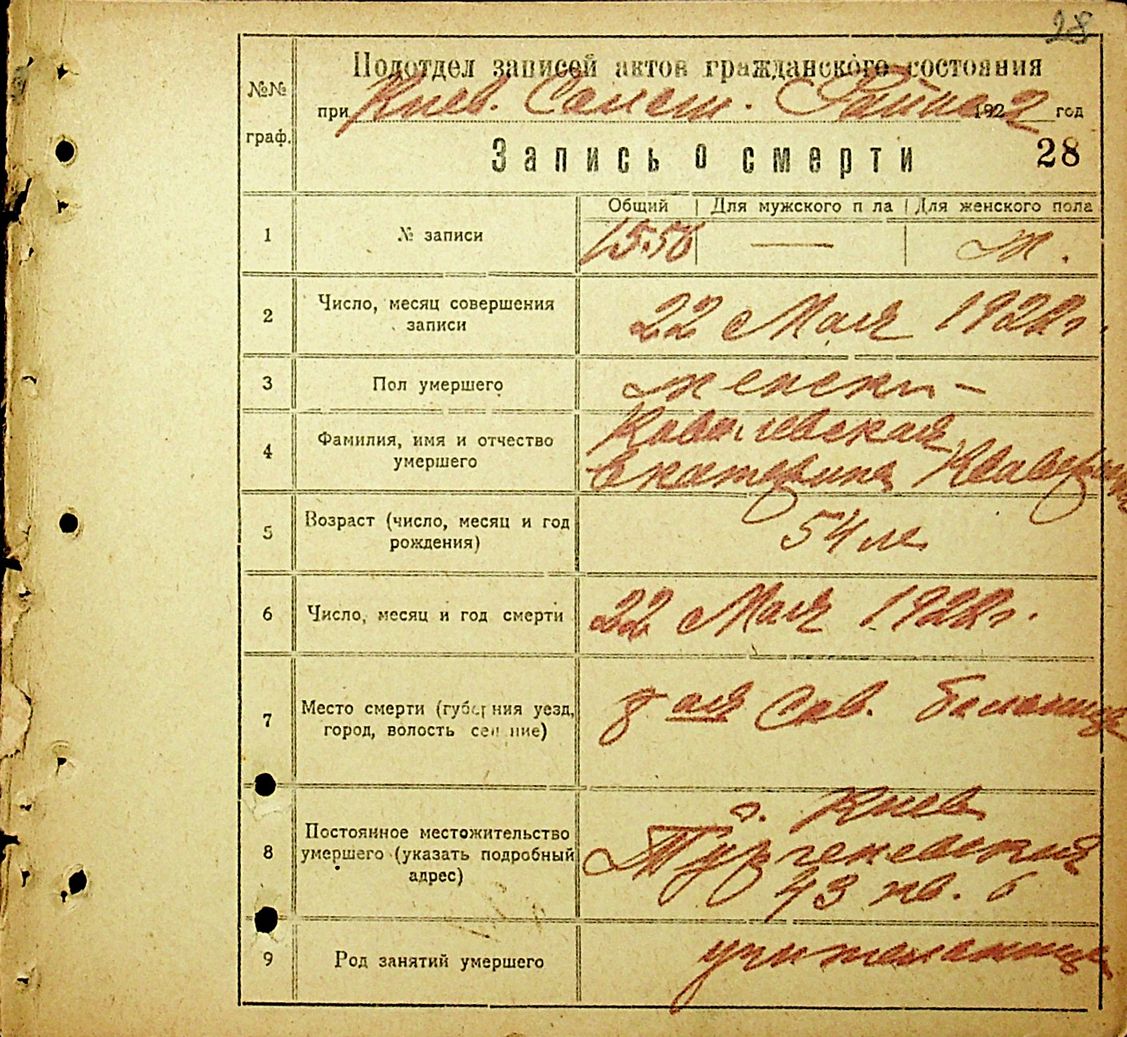 28
Подотдел записей актов гражданского состояния
№№ граф.
при Киев. Район 1922 год
Запись о смерти 28
Общий | Для мужского п ла | Для женского пола
1 № записи 1556 — ж.
2 Число, месяц совершения
записи
22 Мая 1922 г.
3 Пол умершего женски-
4 Фамилия, имя и отчество
умершего
Ковалевская
Екатерина
5 Возраст (число, месяц и год
рождения)
54 ле
6 Число, месяц и год смерти 22 Мая 1922 г.
7 Место смерти (губерния уезд,
город, волость сел ние)
Сов. больница
8 Постоянное местожительство
умершего (указать подробный
адрес)
г. Киев
Тургеневская
43 кв. 6
9 Род занятий умершего учительница